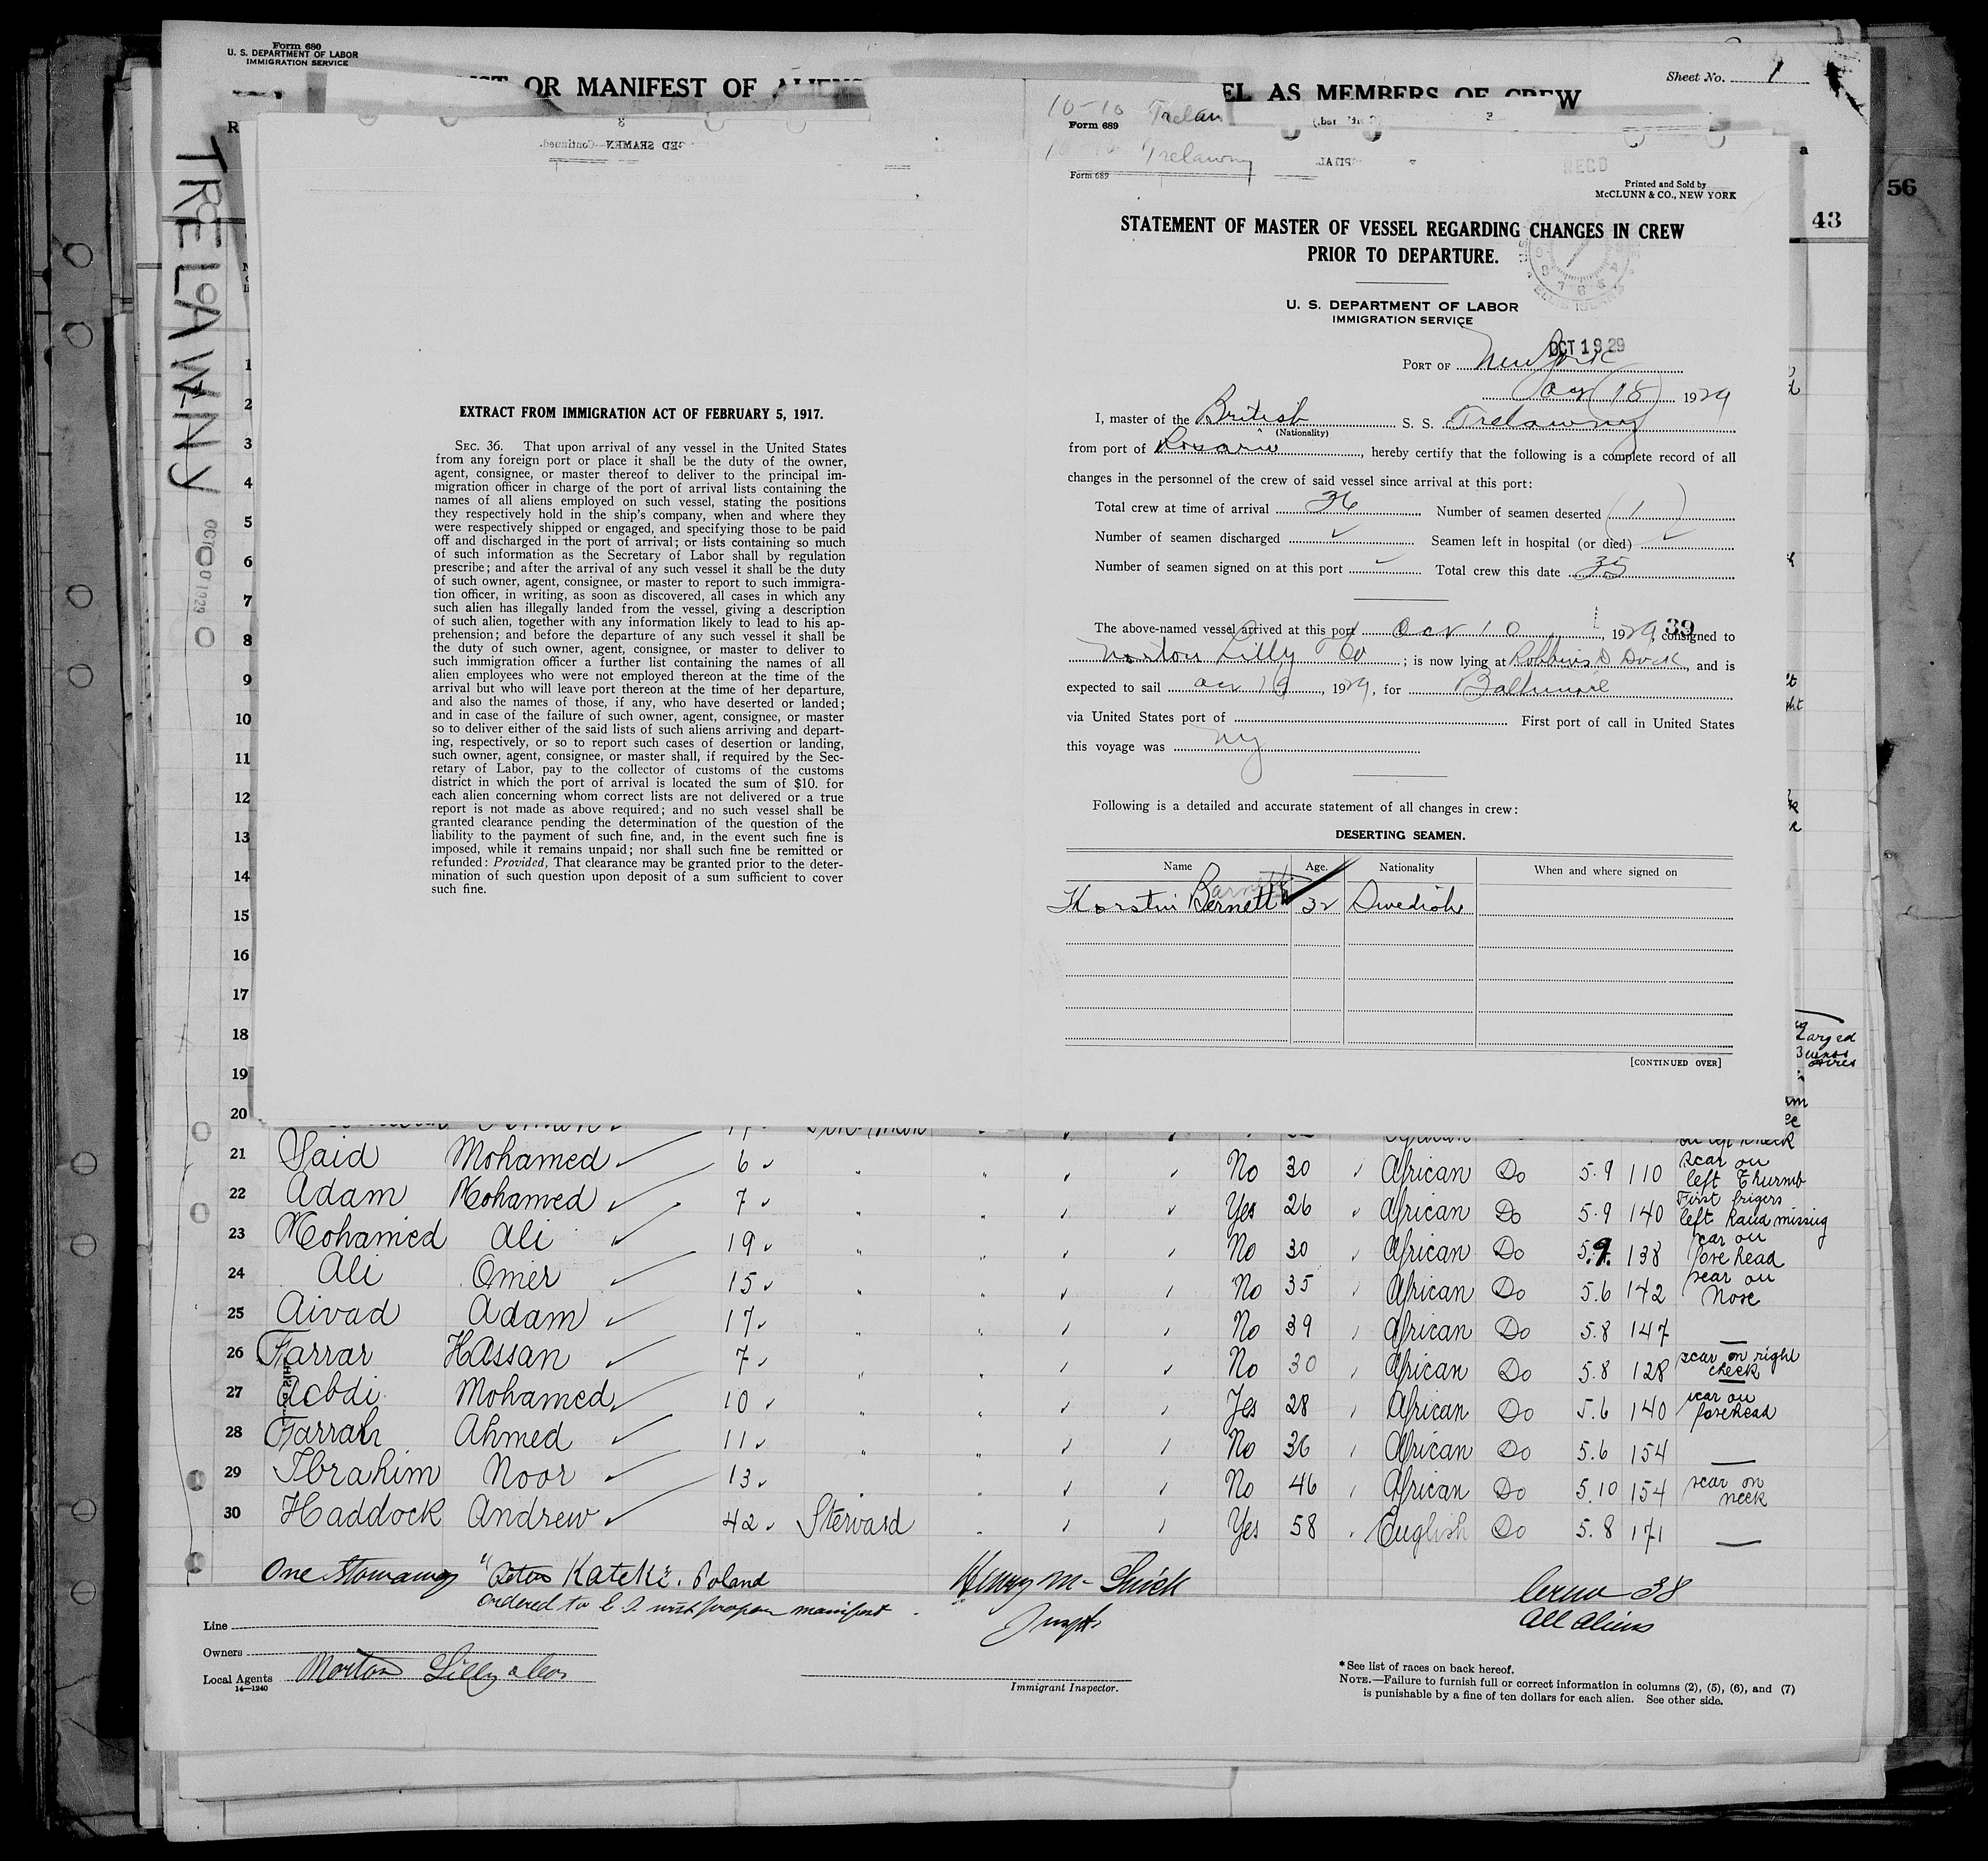 Form 680
U. S. DEPARTMENT OF LABOR
IMMIGRATION SERVICE
OR MANIFEST OF ALIENS
EL AS MEMBERS OF CREW
Sheet No. 1
TRELAWNY
56
43
EXTRACT FROM IMMIGRATION ACT OF FEBRUARY 5, 1917.
SEC. 36. That upon arrival of any vessel in the United States
from any foreign port or place it shall be the duty of the owner,
agent, consignee, or master thereof to deliver to the principal im-
migration officer in charge of the port of arrival lists containing the
names of all aliens employed on such vessel, stating the positions
they respectively hold in the ship's company, when and where they
were respectively shipped or engaged, and specifying those to be paid
off and discharged in the port of arrival; or lists containing so much
of such information as the Secretary of Labor shall by regulation
prescribe; and after the arrival of any such vessel it shall be the duty
of such owner, agent, consignee, or master to report to such immigra-
tion officer, in writing, as soon as discovered, all cases in which any
such alien has illegally landed from the vessel, giving a description
of such alien, together with any information likely to lead to his ap-
prehension; and before the departure of any such vessel it shall be
the duty of such owner, agent, consignee, or master to deliver to
such immigration officer a further list containing the names of all
alien employees who were not employed thereon at the time of the
arrival but who will leave port thereon at the time of her departure,
and also the names of those, if any, who have deserted or landed;
and in case of the failure of such owner, agent, consignee, or master
so to deliver either of the said lists of such aliens arriving and depart-
ing, respectively, or so to report such cases of desertion or landing,
such owner, agent, consignee, or master shall, if required by the Sec-
retary of Labor, pay to the collector of customs of the customs
district in which the port of arrival is located the sum of $10. for
each alien concerning whom correct lists are not delivered or a true
report is not made as above required; and no such vessel shall be
granted clearance pending the determination of the question of the
liability to the payment of such fine, and, in the event such fine is
imposed, while it remains unpaid; nor shall such fine be remitted or
refunded: Provided, That clearance may be granted prior to the deter-
mination of such question upon deposit of a sum sufficient to cover
such fine.
10-10 Trelaw
Form 689
Trelawny
Form 689
REC'D
Printed and Sold by
McCLUNN & CO., NEW YORK
STATEMENT OF MASTER OF VESSEL REGARDING CHANGES IN CREW
PRIOR TO DEPARTURE.
U. S. DEPARTMENT OF LABOR
IMMIGRATION SERVICE
OCT 19 29
PORT OF New York
Oct 18 1929
I, master of the British S. S. Trelawny
(Nationality)
from port of Rosario, hereby certify that the following is a complete record of all
changes in the personnel of the crew of said vessel since arrival at this port:
Total crew at time of arrival 36 Number of seamen deserted (1)
Number of seamen discharged ✓ Seamen left in hospital (or died) ✓
Number of seamen signed on at this port ✓ Total crew this date 35
39
The above-named vessel arrived at this port Oct 10, 1929, consigned to
Norton Lilly & Co; is now lying at Robbins D Dock, and is
expected to sail Oct 19, 1929, for Baltimore
via United States port of First port of call in United States
this voyage was NY
Following is a detailed and accurate statement of all changes in crew:
DESERTING SEAMEN.
Name Age. Nationality When and where signed on
Barnett
Thorstin Bernett 32 Swedish
[CONTINUED OVER]
1
2
3
4
5
6
7
8
9
10
11
12
13
14
15
16
17
18
19
20
21 Said Mohamed ✓ 6 ✓ " " No 30 African Do 5.9 110 scar on left Thumb
22 Adam Mohamed ✓ 7 ✓ " " Yes 26 African Do 5.9 140 First fingers left hand missing
23 Mohamed Ali ✓ 19 ✓ " " No 30 African Do 5.9 138 scar on forehead
24 Ali Omer ✓ 15 ✓ " " No 35 African Do 5.6 142 scar on Nose
25 Aivad Adam ✓ 17 ✓ " " No 39 African Do 5.8 147 —
26 Farrar Hassan ✓ 7 ✓ " " No 30 African Do 5.8 128 scar on right cheek
27 Acbdi Mohamed ✓ 10 ✓ " " Yes 28 African Do 5.6 140 scar on forehead
28 Farrah Ahmed ✓ 11 ✓ " " No 36 African Do 5.6 154 —
29 Ibrahim Noor ✓ 13 ✓ " No 46 African Do 5.10 154 scar on neck
30 Haddock Andrew ✓ 42 ✓ Steward " Yes 58 English Do 5.8 171 —
One Stowaway "Peter Kateki". Poland
ordered to E I. with proper manifest.
Crew 38
All Aliens
Line
Owners
Local Agents Norton Lilly & Co.
14—1240
Immigrant Inspector.
* See list of races on back hereof.
NOTE.—Failure to furnish full or correct information in columns (2), (5), (6), and (7)
is punishable by a fine of ten dollars for each alien. See other side.